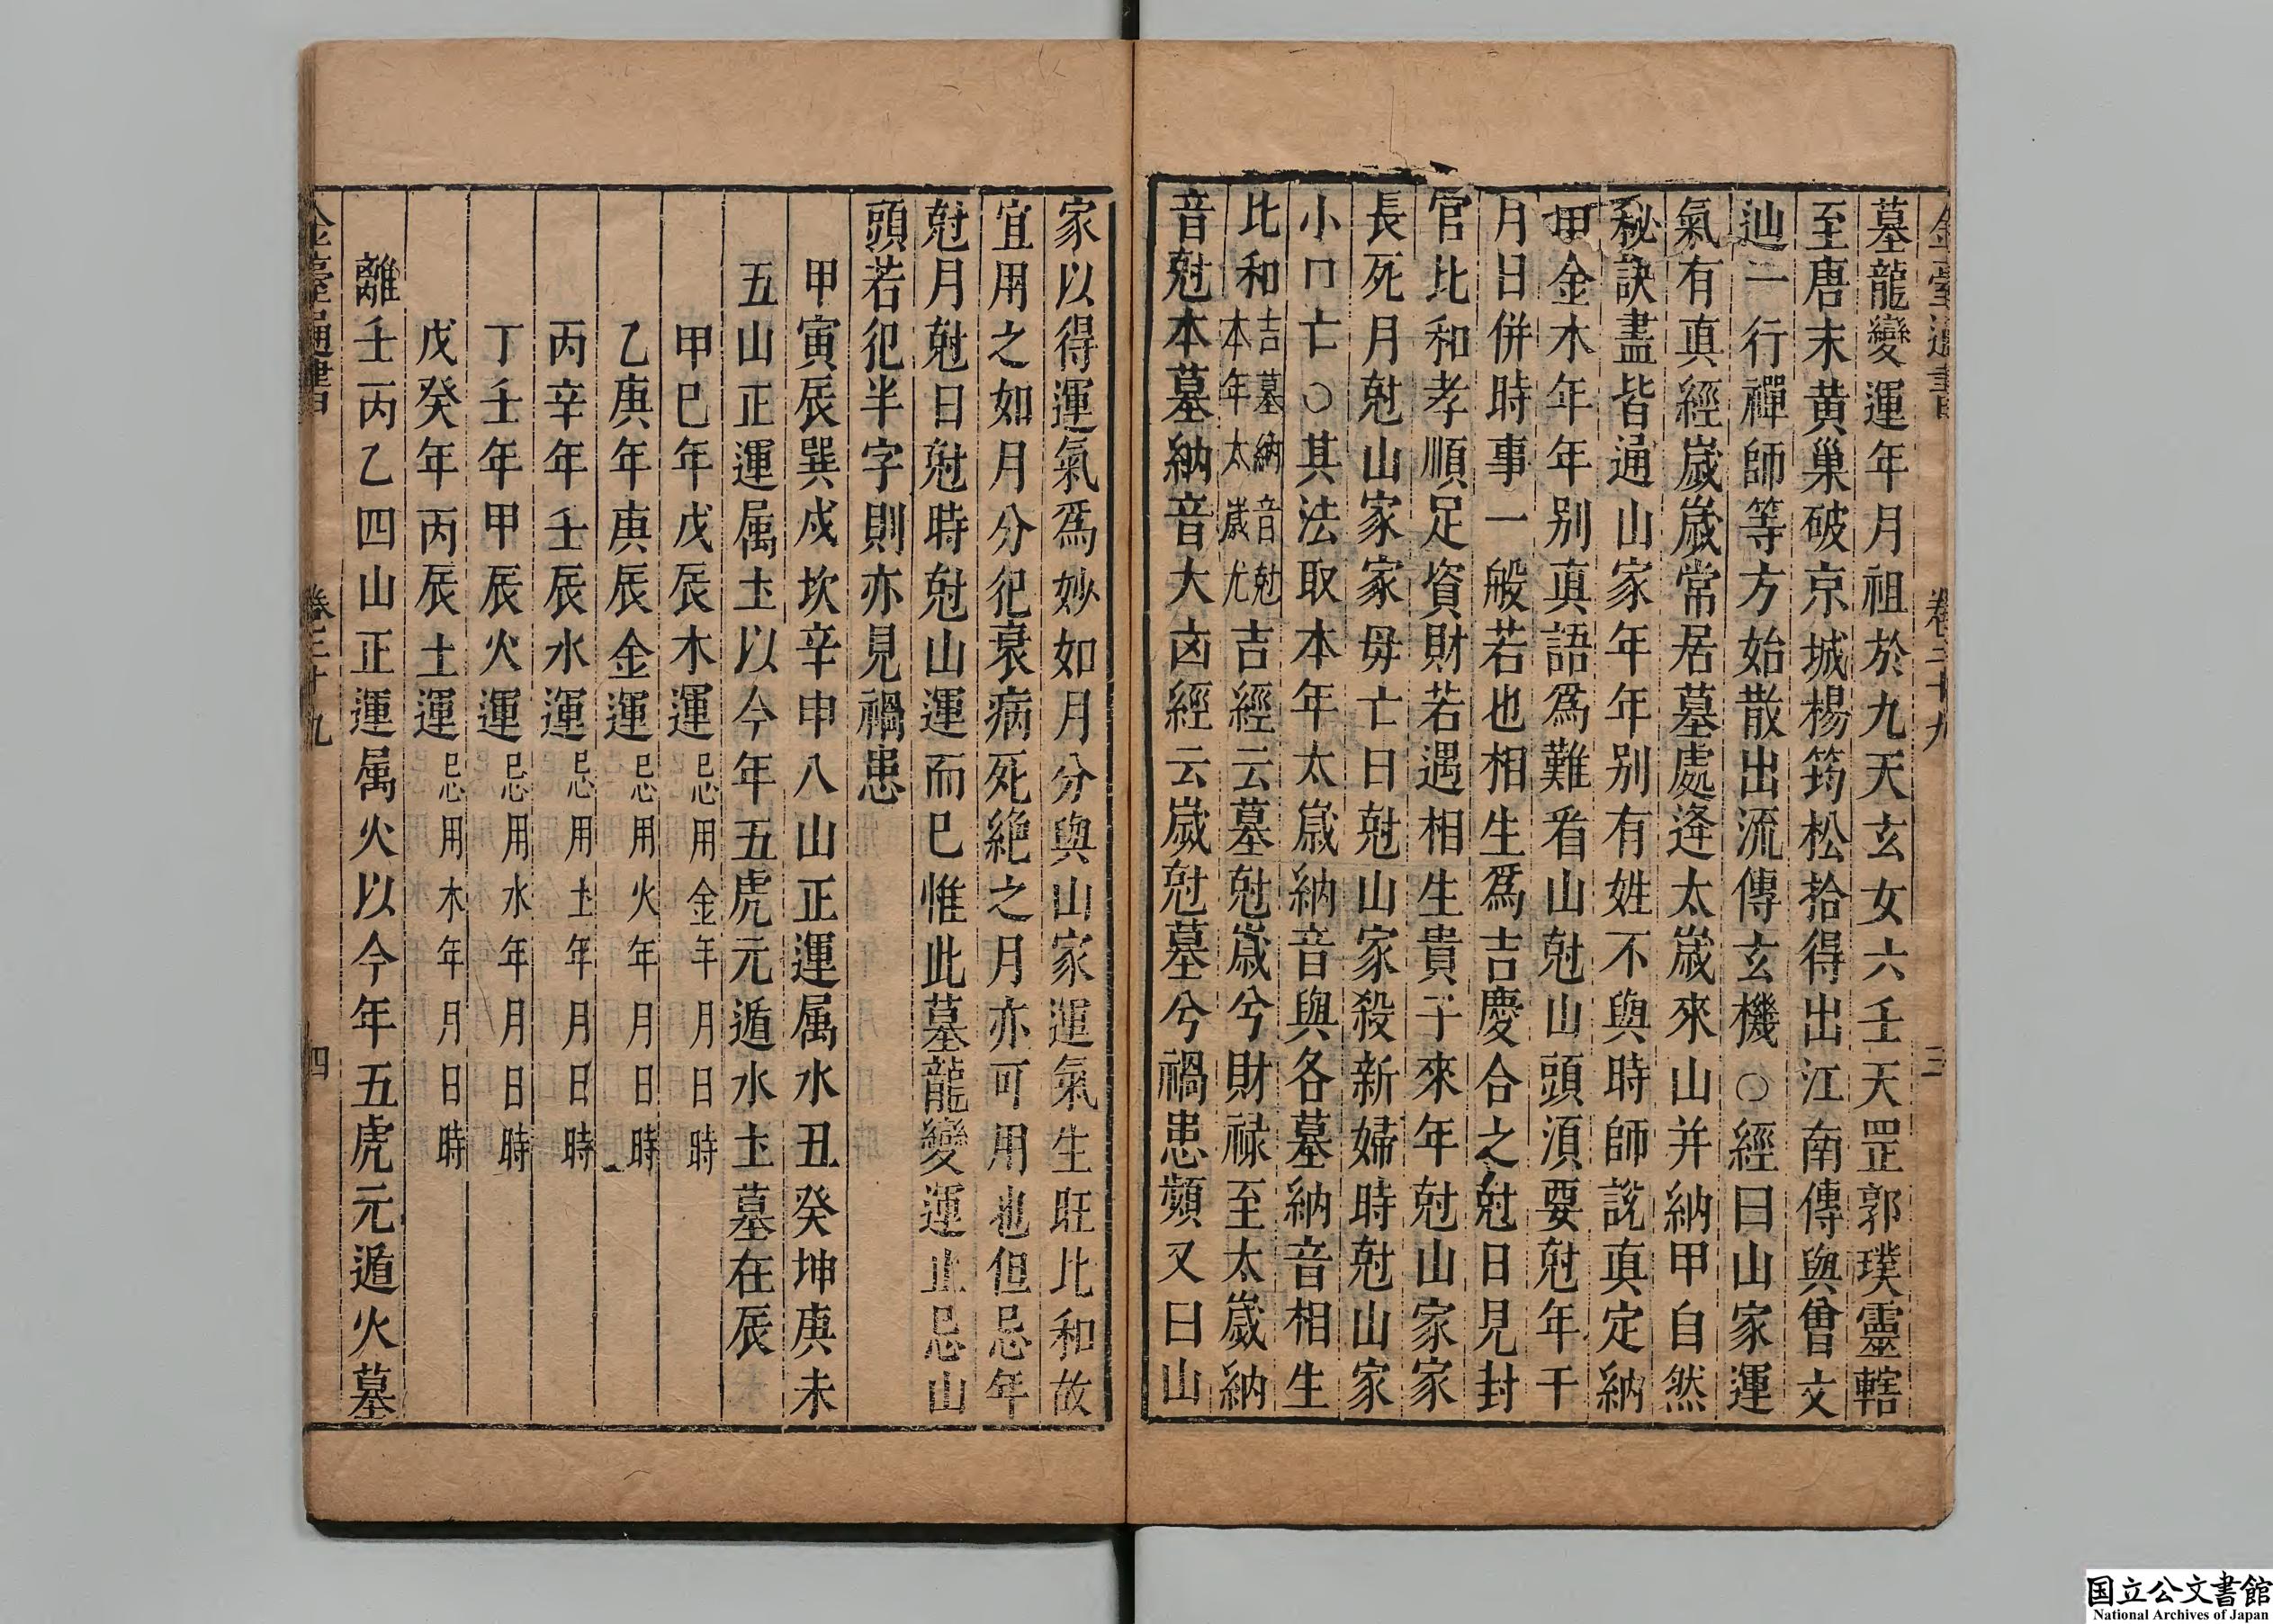 墓龍變運年月祖於九天玄女六壬天罡郭璞靈轄
至唐末黄巢破京城楊筠松拾得出江南傳與曾文
辿一行禪師等方始散出流傳玄機○經曰山家運
氣有真經嵗嵗常居墓處逄太嵗來山并納甲自然
秘訣盡皆通山家年年别有姓不與時師說真定納
甲金木年年别真語爲難看山尅山頭湏要尅年干
月日併時事一般若也相生爲吉慶合之尅日見封
官比和孝順足資財若遇相生貴子來年尅山家家
長死月尅山家家毋亡日尅山家殺新婦時尅山家
小口亡○其法取本年太嵗納音與各墓納音相生
比和吉墓納音尅本年太嵗尤吉經云墓尅嵗兮財禄至太嵗納
音尅本墓納音大凶經云嵗尅墓兮禍患頻又曰山
家以得運氣爲妙如月分與山家運氣生旺比和故
宜用之如月分犯衰病死絶之月亦可用也但忌年
尅月尅日尅時尅山運而巳惟此墓龍變運止忌山
頭若犯半字則亦見禍患
甲寅辰巽戌坎辛申八山正運属水丑癸坤庚未
五山正運属土以今年五虎元遁水土墓在辰
甲巳年戊辰木運忌用金年月日時
乙庚年庚辰金運忌用火年月日時
丙辛年壬辰水運忌用土年月日時
丁壬年甲辰火運忌用水年月日時
戊癸年丙辰土運忌用木年月日時
離壬丙乙四山正運属火以今年五虎元遁火墓
卷三十九
四
国立公文書館
National Archives of Japan